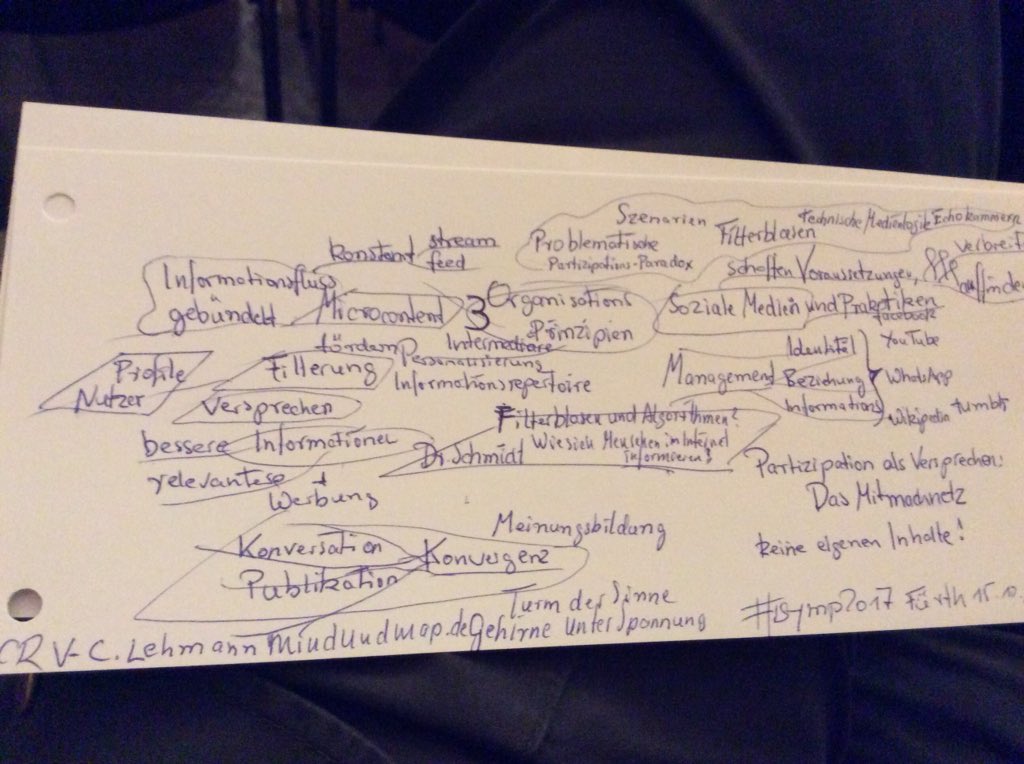 Szenarien
Filterblasen
technische Medienlogik Echokammern
Problematische
Partizipations-Paradox
konstant stream
feed
schaffen Voraussetzungen,
verbreit
auffinde
Informationsfluss
gebündelt
Microcontent
3 Organisations
Prinzipien
Soziale Medien und Praktiken
facebook
Intermediäre
fördern Personalisierung
Informationsrepertoire
Filterung
Profile
Nutzer
Versprechen
Management
Identität
Beziehung
Informations
YouTube
WhatsApp
Wikipedia tumblr
bessere Informationen
relevantese
+
Werbung
Filterblasen und Algorithmen?
Wie sich Menschen im Internet
informieren?
Dr Schmidt
Partizipation als Versprechen:
Das Mitmachnetz
keine eigenen Inhalte!
Meinungsbildung
Konversation
Konvergenz
Publikation
Turm der Sinne
Gehirne unter Spannung
#tsymp2017 Fürth 15.10.
CR V-C. Lehmann mindundmap.de